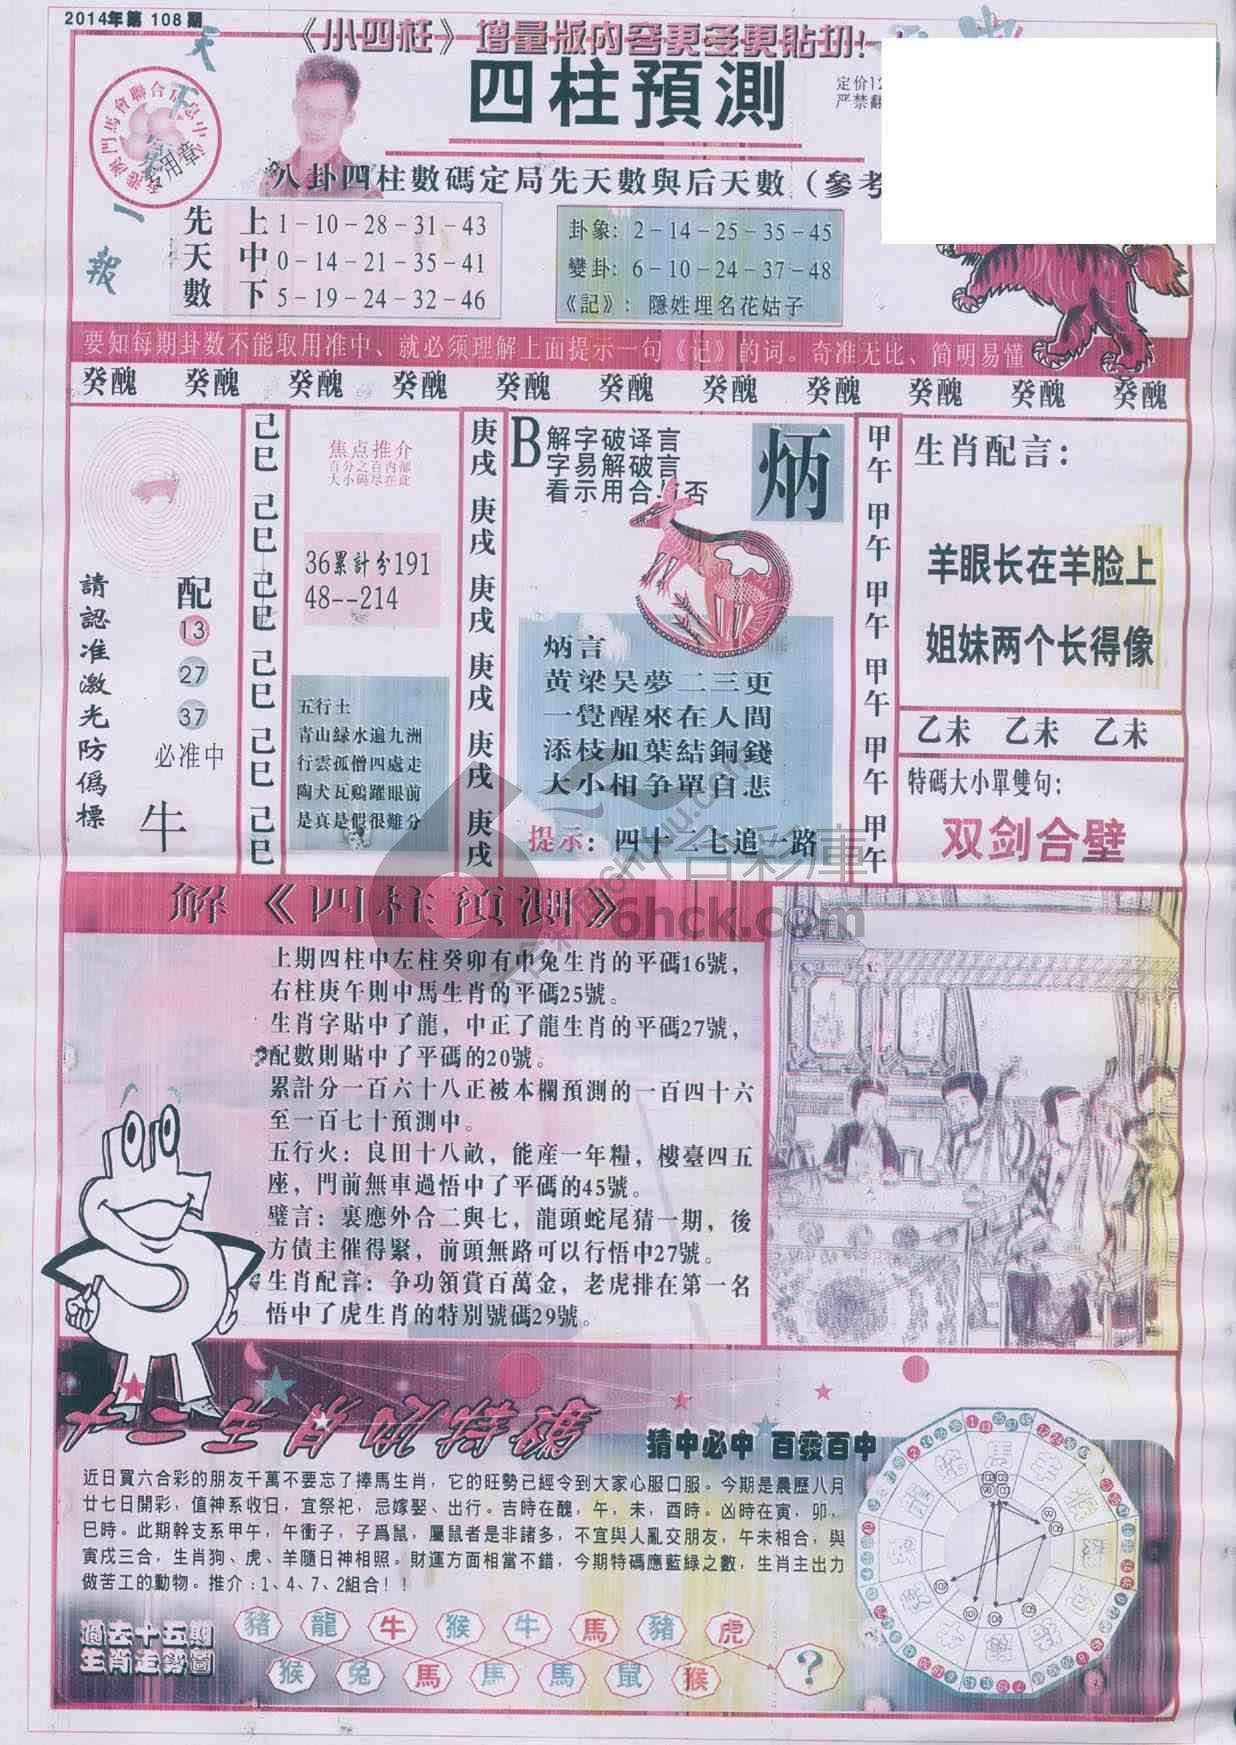 2014年第 108 期
《小四柱》增量版内容更多更貼切!
四柱預測
定价12
严禁翻
八卦四柱數碼定局先天數與后天數（參考
天
下
第
一
報
香港澳門馬會聯合信息中心
专用章
先天數
上 1－10－28－31－43
中 0－14－21－35－41
下 5－19－24－32－46
卦象: 2－14－25－35－45
變卦: 6－10－24－37－48
《記》: 隱姓埋名花姑子
要知每期卦数不能取用准中、就必须理解上面提示一句《记》的词。奇准无比、简明易懂
癸醜 癸醜 癸醜 癸醜 癸醜 癸醜 癸醜 癸醜 癸醜 癸醜 癸醜
請認准激光防僞標
配
13
27
37
必准中
牛
己巳 己巳 己巳 己巳 己巳 己巳
焦点推介
百分之百内部
大小码尽在此
36累計分191
48--214
五行土
青山緑水遍九洲
行雲孤僧四處走
陶犬瓦鷄躍眼前
是真是假很難分
庚戌 庚戌 庚戌 庚戌 庚戌 庚戌
B
解字破译言
字易解破言
看示用合与否
炳
炳言
黄梁吴夢二三更
一覺醒來在人間
添枝加葉結銅錢
大小相争單自悲
提示: 四十二七追一路
甲午 甲午 甲午 甲午 甲午 甲午
生肖配言:
羊眼长在羊脸上
姐妹两个长得像
乙未 乙未 乙未
特碼大小單雙句:
双剑合壁
六合彩庫
6hck.com
解《四柱預測》
上期四柱中左柱癸卯有中兔生肖的平碼16號，
右柱庚午則中馬生肖的平碼25號。
生肖字貼中了龍，中正了龍生肖的平碼27號，
配數則貼中了平碼的20號。
累計分一百六十八正被本欄預測的一百四十六
至一百七十預測中。
五行火: 良田十八畝，能産一年糧，樓臺四五
座，門前無車過悟中了平碼的45號。
璧言: 裏應外合二與七，龍頭蛇尾猜一期，後
方債主催得緊，前頭無路可以行悟中27號。
生肖配言: 争功領賞百萬金，老虎排在第一名
悟中了虎生肖的特別號碼29號。
猜中必中 百發百中
近日買六合彩的朋友千萬不要忘了捧馬生肖，它的旺勢已經令到大家心服口服。今期是農歷八月
廿七日開彩，值神系收日，宜祭祀，忌嫁娶、出行。吉時在醜，午，未，酉時。凶時在寅，卯，
巳時。此期幹支系甲午，午衝子，子爲鼠，屬鼠者是非諸多，不宜與人亂交朋友，午未相合，與
寅戌三合，生肖狗、虎、羊隨日神相照。財運方面相當不錯，今期特碼應藍緑之數，生肖主出力
做苦工的動物。推介:1、4、7、2組合！！
過去十五期
生肖走势圖
豬 龍 牛 猴 牛 馬 豬 虎
猴 兔 馬 馬 馬 鼠 猴 ?